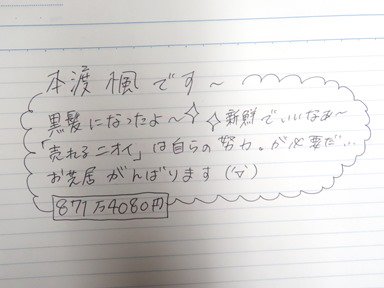 本渡 楓です~
黒髪になったよ~✧ ✧新鮮でいいなあ~
「売れるニオイ」は自らの努力。が必要だ...
お芝居がんばります(▽)
871万4080円